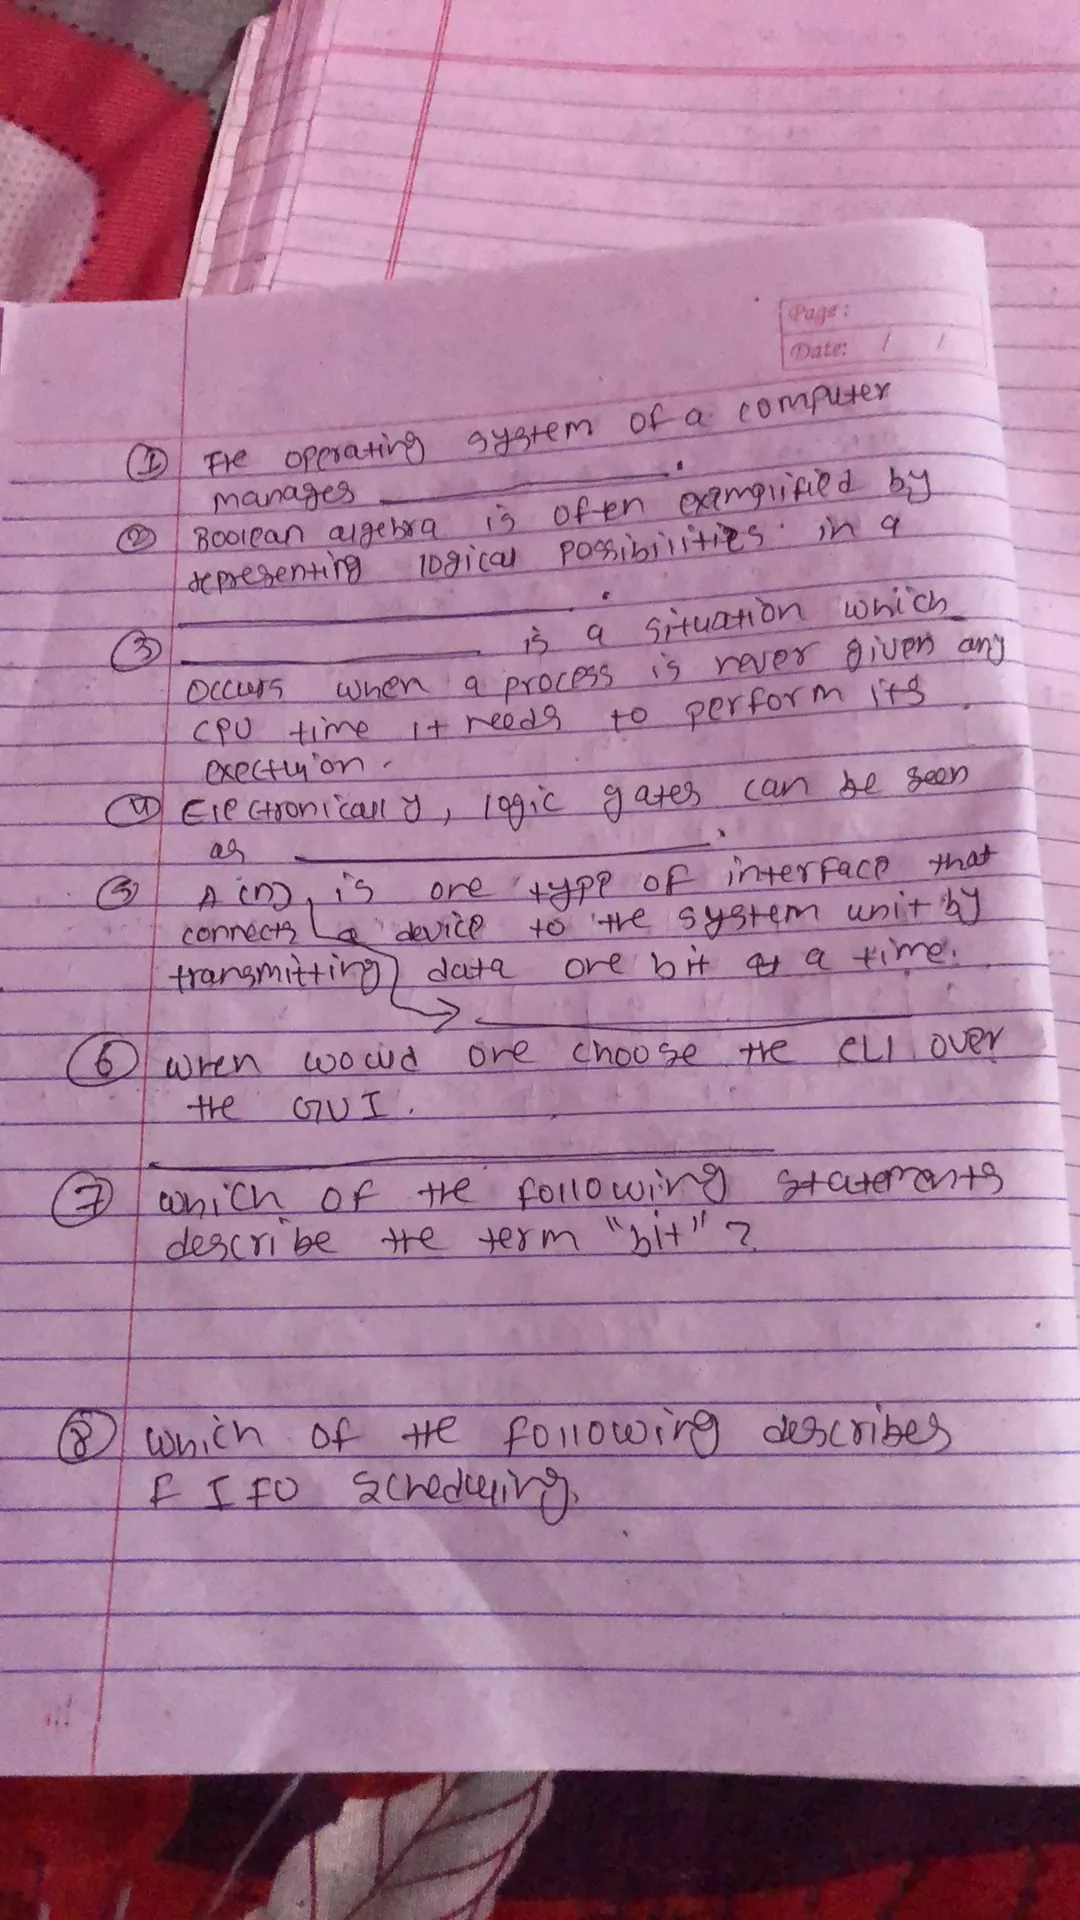 Page:
Date: / /
① The operating system of a computer
manages ________.
② Boolean algebra is often examplified by
representing logical possibilities in a
________.
③ ________ is a situation which
occurs when a process is never given any
CPU time it needs to perform its
exectuion.
④ Electronically, logic gates can be seen
as ________.
⑤ A(n), is one type of interface that
connects a device to the system unit by
transmitting data one bit at a time.
→ ________
⑥ when would one choose the CLI over
the GUI.
________
⑦ which of the following statements
describe the term "bit"?
⑧ which of the following describes
FIFO scheduling.